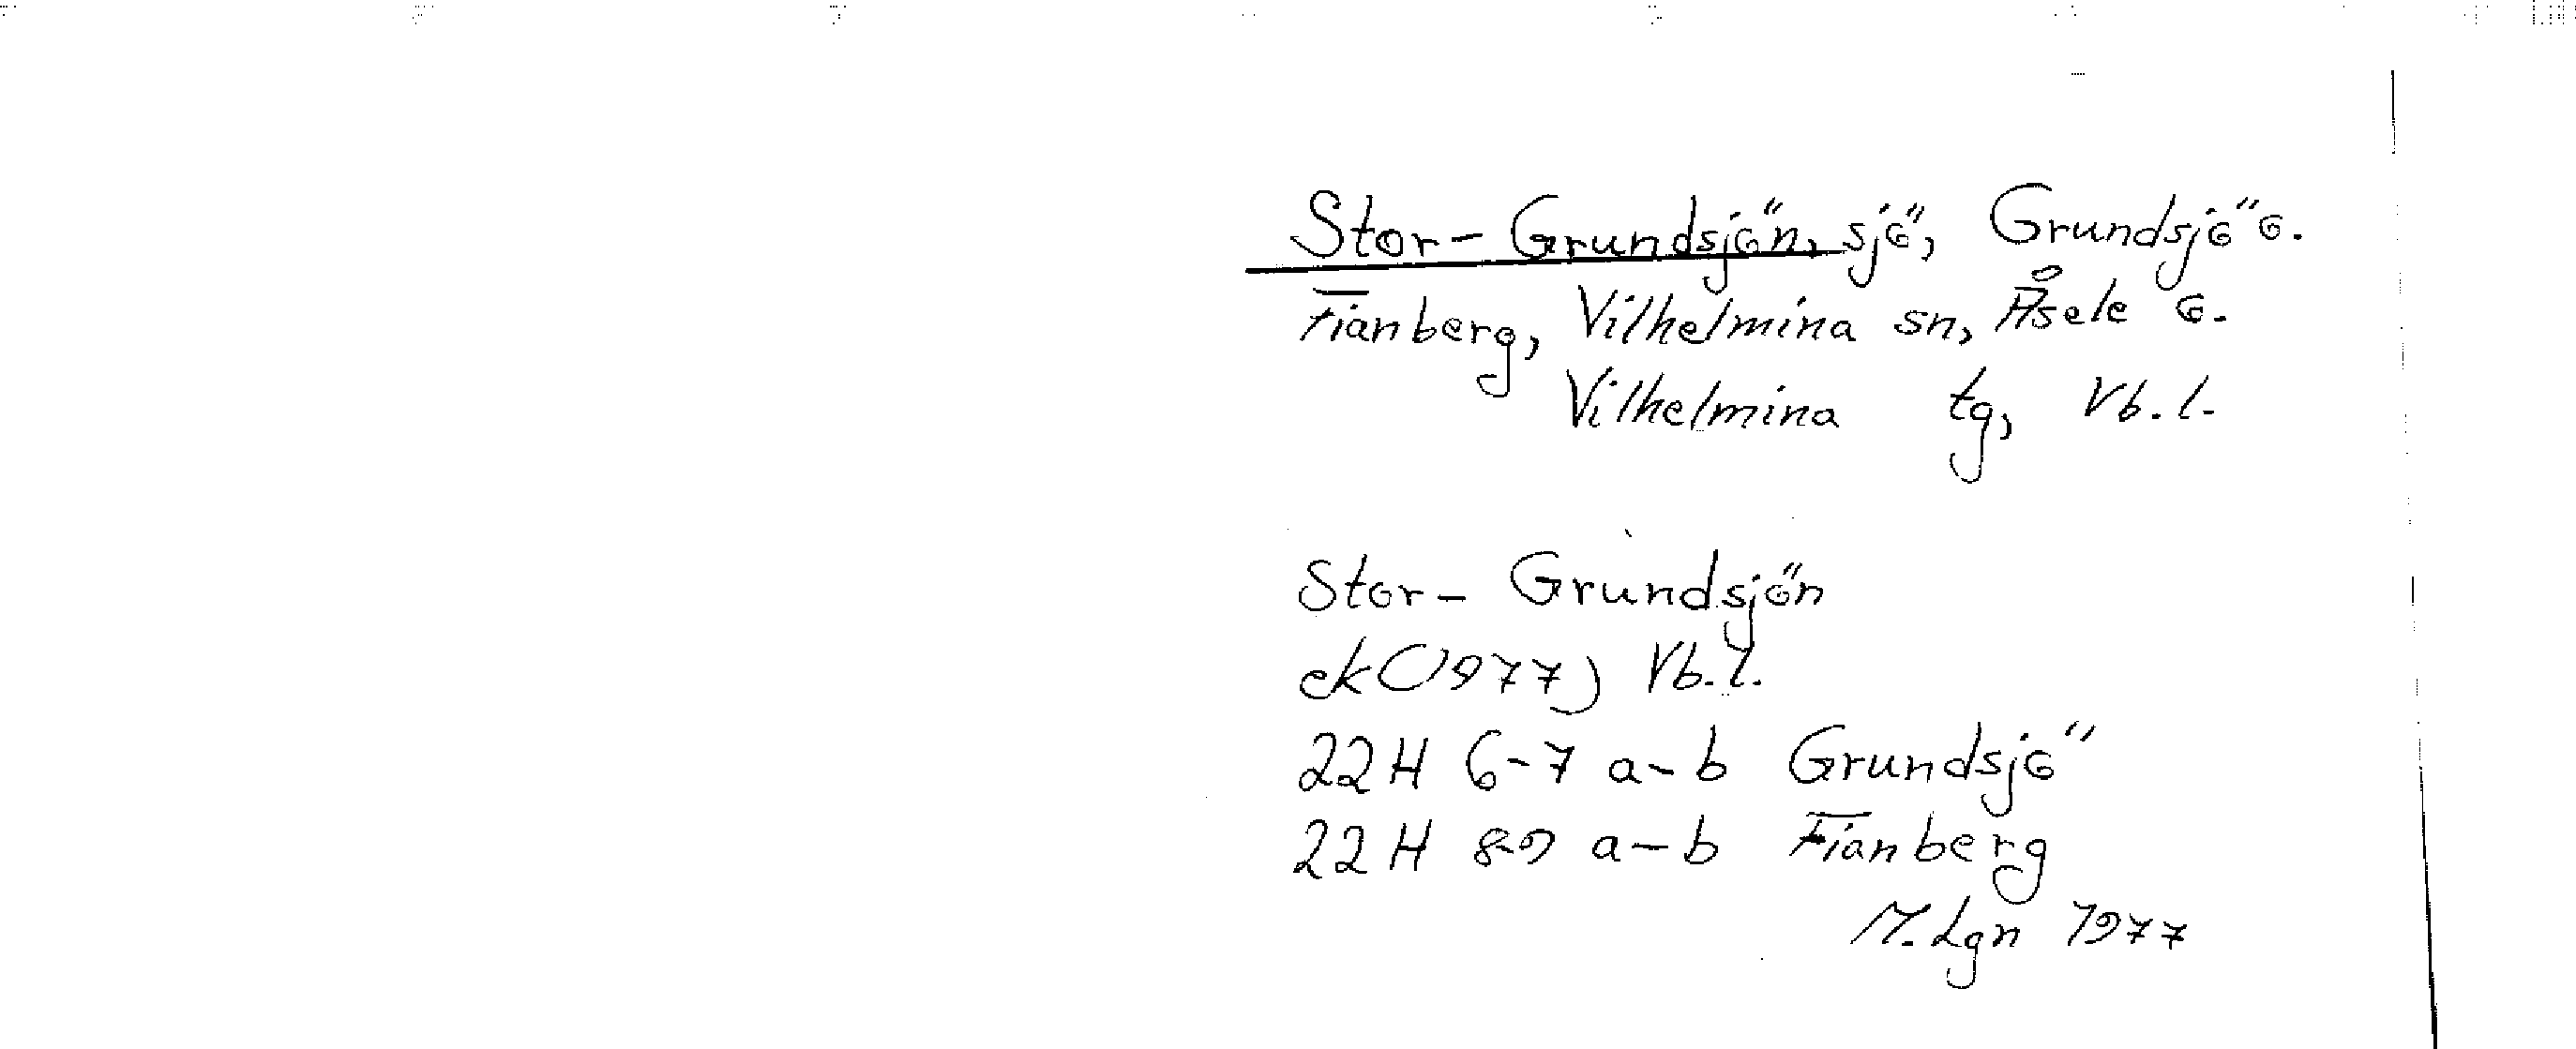 Stor-Grundsjön, sjö, Grundsjö o.
Fianberg, Vilhelmina sn, Åsele o.
Vilhelmina tg, Vb.l.
Stor-Grundsjön
ek (1977) Vb.l.
22H 6-7 a-b Grundsjö
22H 8-9 a-b Fianberg
M. Lgn 1977